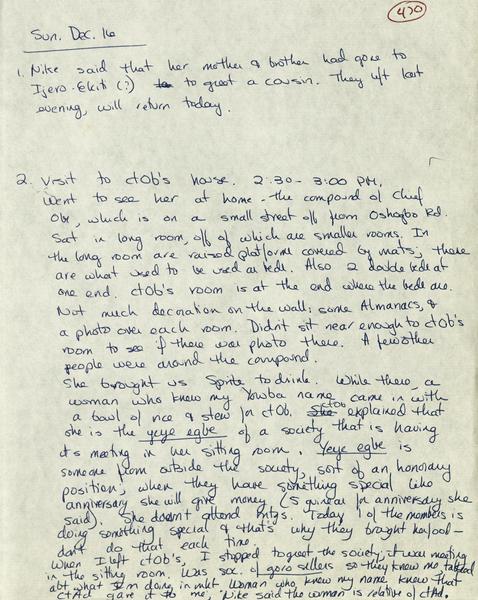 470
Sun. Dec. 16
1. Nike said that her mother & brother had gone to
Ijero-Ekiti (?) to greet a cousin. They left last
evening, will return today.
2. Visit to ctOb's house. 2:30 - 3:00 PM.
Went to see her at home - the compound of Chief
Obi, which is on a small street off from Oshogbo Rd.
Sat in long room, off of which are smaller rooms. In
the long room are raised platforms covered by mats; these
are what used to be used as beds. Also 2 double beds at
one end. ctOb's room is at the end where the beds are.
Not much decoration on the wall; some Almanacs, &
a photo over each room. Didn't sit near enough to ctOb's
room to see if there was photo there. A few other
people were around the compound.
She brought us Sprite to drink. While there, a
woman who knew my Yoruba name came in with
a bowl of rice & stew for ctOb. ctOb explained that
she is the yeye egbe of a society that is having
its meeting in her sitting room. Yeye egbe is
someone from outside the society, sort of an honorary
position; when they have something special like
anniversary she will give money (5 guineas for anniversary she
said). She doesn't attend mtgs. Today 1 of the members is
doing something special & that's why they brought her food -
don't do that each time.
When I left ctOb's, I stopped to greet the society; it was meeting
in the sitting room. Was soc. of goro sellers so they knew me & talked
abt what I'm doing in mkt. Woman who knew my name knew that
gave it to me; Nike said the woman is relative of ctAd.